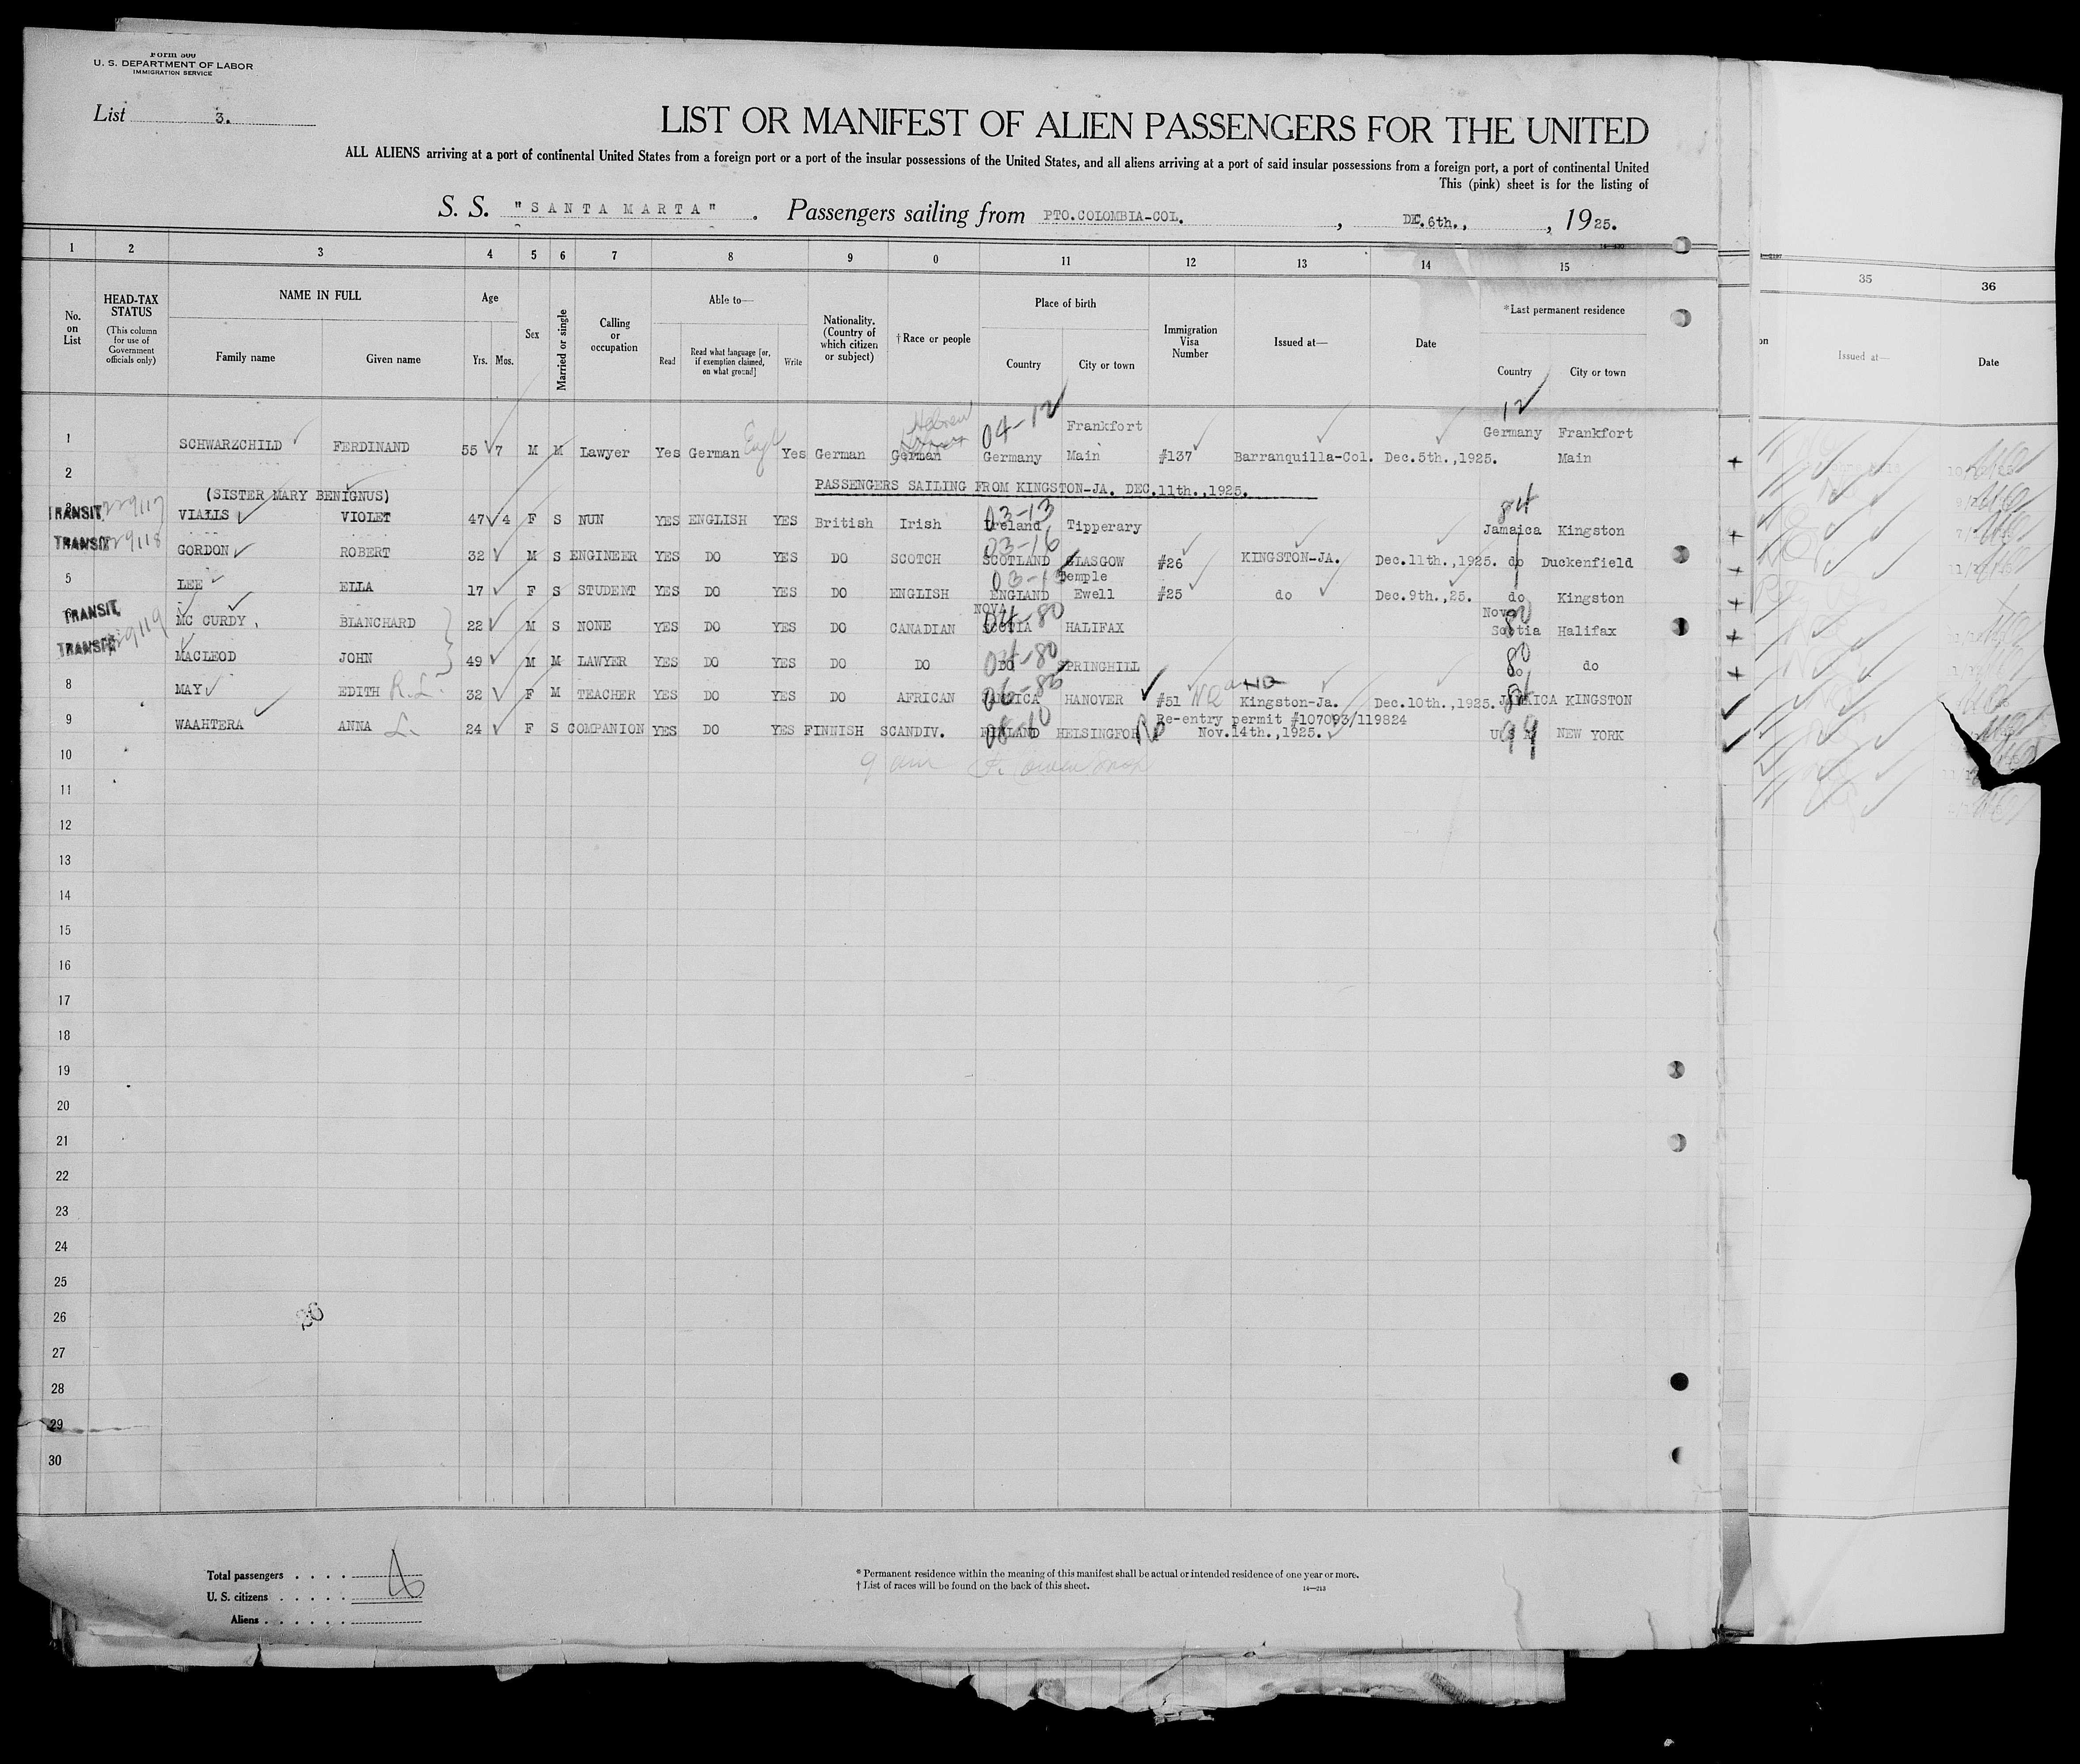 Form 500
U. S. DEPARTMENT OF LABOR
IMMIGRATION SERVICE
List 3.
LIST OR MANIFEST OF ALIEN PASSENGERS FOR THE UNITED
ALL ALIENS arriving at a port of continental United States from a foreign port or a port of the insular possessions of the United States, and all aliens arriving at a port of said insular possessions from a foreign port, a port of continental United
This (pink) sheet is for the listing of
S. S. "SANTA MARTA". Passengers sailing from PTO.COLOMBIA-COL. , DEC.6th., , 1925.
1 2 3 4 5 6 7 8 9 0 11 12 13 14 15 35 36
No. on List
HEAD-TAX STATUS (This column for use of Government officials only)
NAME IN FULL
Family name Given name
Age Yrs. Mos.
Sex
Married or single
Calling or occupation
Able to—
Read Read what language [or, if exemption claimed, on what ground] Write
Nationality. (Country of which citizen or subject)
† Race or people
Place of birth
Country City or town
Immigration Visa Number
Issued at—
Date
* Last permanent residence
Country City or town
on Issued at— Date
1 SCHWARZCHILD FERDINAND 55 7 M M Lawyer Yes German Engl Yes German Hebrew German 04-12 Germany Frankfort Main #137 Barranquilla-Col. Dec.5th.,1925. 12 Germany Frankfort Main
2
PASSENGERS SAILING FROM KINGSTON-JA. DEC.11th.,1925.
(SISTER MARY BENIGNUS)
TRANSIT 229117 VIALLS VIOLET 47 4 F S NUN YES ENGLISH YES British Irish 03-13 Ireland Tipperary 84 Jamaica Kingston
TRANSIT 229118 GORDON ROBERT 32 M S ENGINEER YES DO YES DO SCOTCH 03-16 SCOTLAND GLASGOW #26 KINGSTON-JA. Dec.11th.,1925. do Duckenfield
5 LEE ELLA 17 F S STUDENT YES DO YES DO ENGLISH 03-13 ENGLAND Temple Ewell #25 do Dec.9th.,25. do Kingston
TRANSIT MC CURDY, BLANCHARD 22 M S NONE YES DO YES DO CANADIAN 04-80 NOVA SCOTIA HALIFAX 80 Nova Scotia Halifax
TRANSIT 229119 MACLEOD JOHN 49 M M LAWYER YES DO YES DO DO 04-80 DO SPRINGHILL 80 do do
8 MAY EDITH R.L. 32 F M TEACHER YES DO YES DO AFRICAN JAMAICA HANOVER #51 Kingston-Ja. Dec.10th.,1925. 84 JAMAICA KINGSTON
9 WAAHTERA ANNA L. 24 F S COMPANION YES DO YES FINNISH SCANDIV. 08-10 FINLAND HELSINGFOR Re-entry permit #107093/119824 Nov.14th.,1925. 99 U S A NEW YORK
10
11
12
13
14
15
16
17
18
19
20
21
22
23
24
25
26
27
28
29
30
Total passengers . . . .
U. S. citizens . . . . .
Aliens . . . . . .
* Permanent residence within the meaning of this manifest shall be actual or intended residence of one year or more.
† List of races will be found on the back of this sheet. 14—213